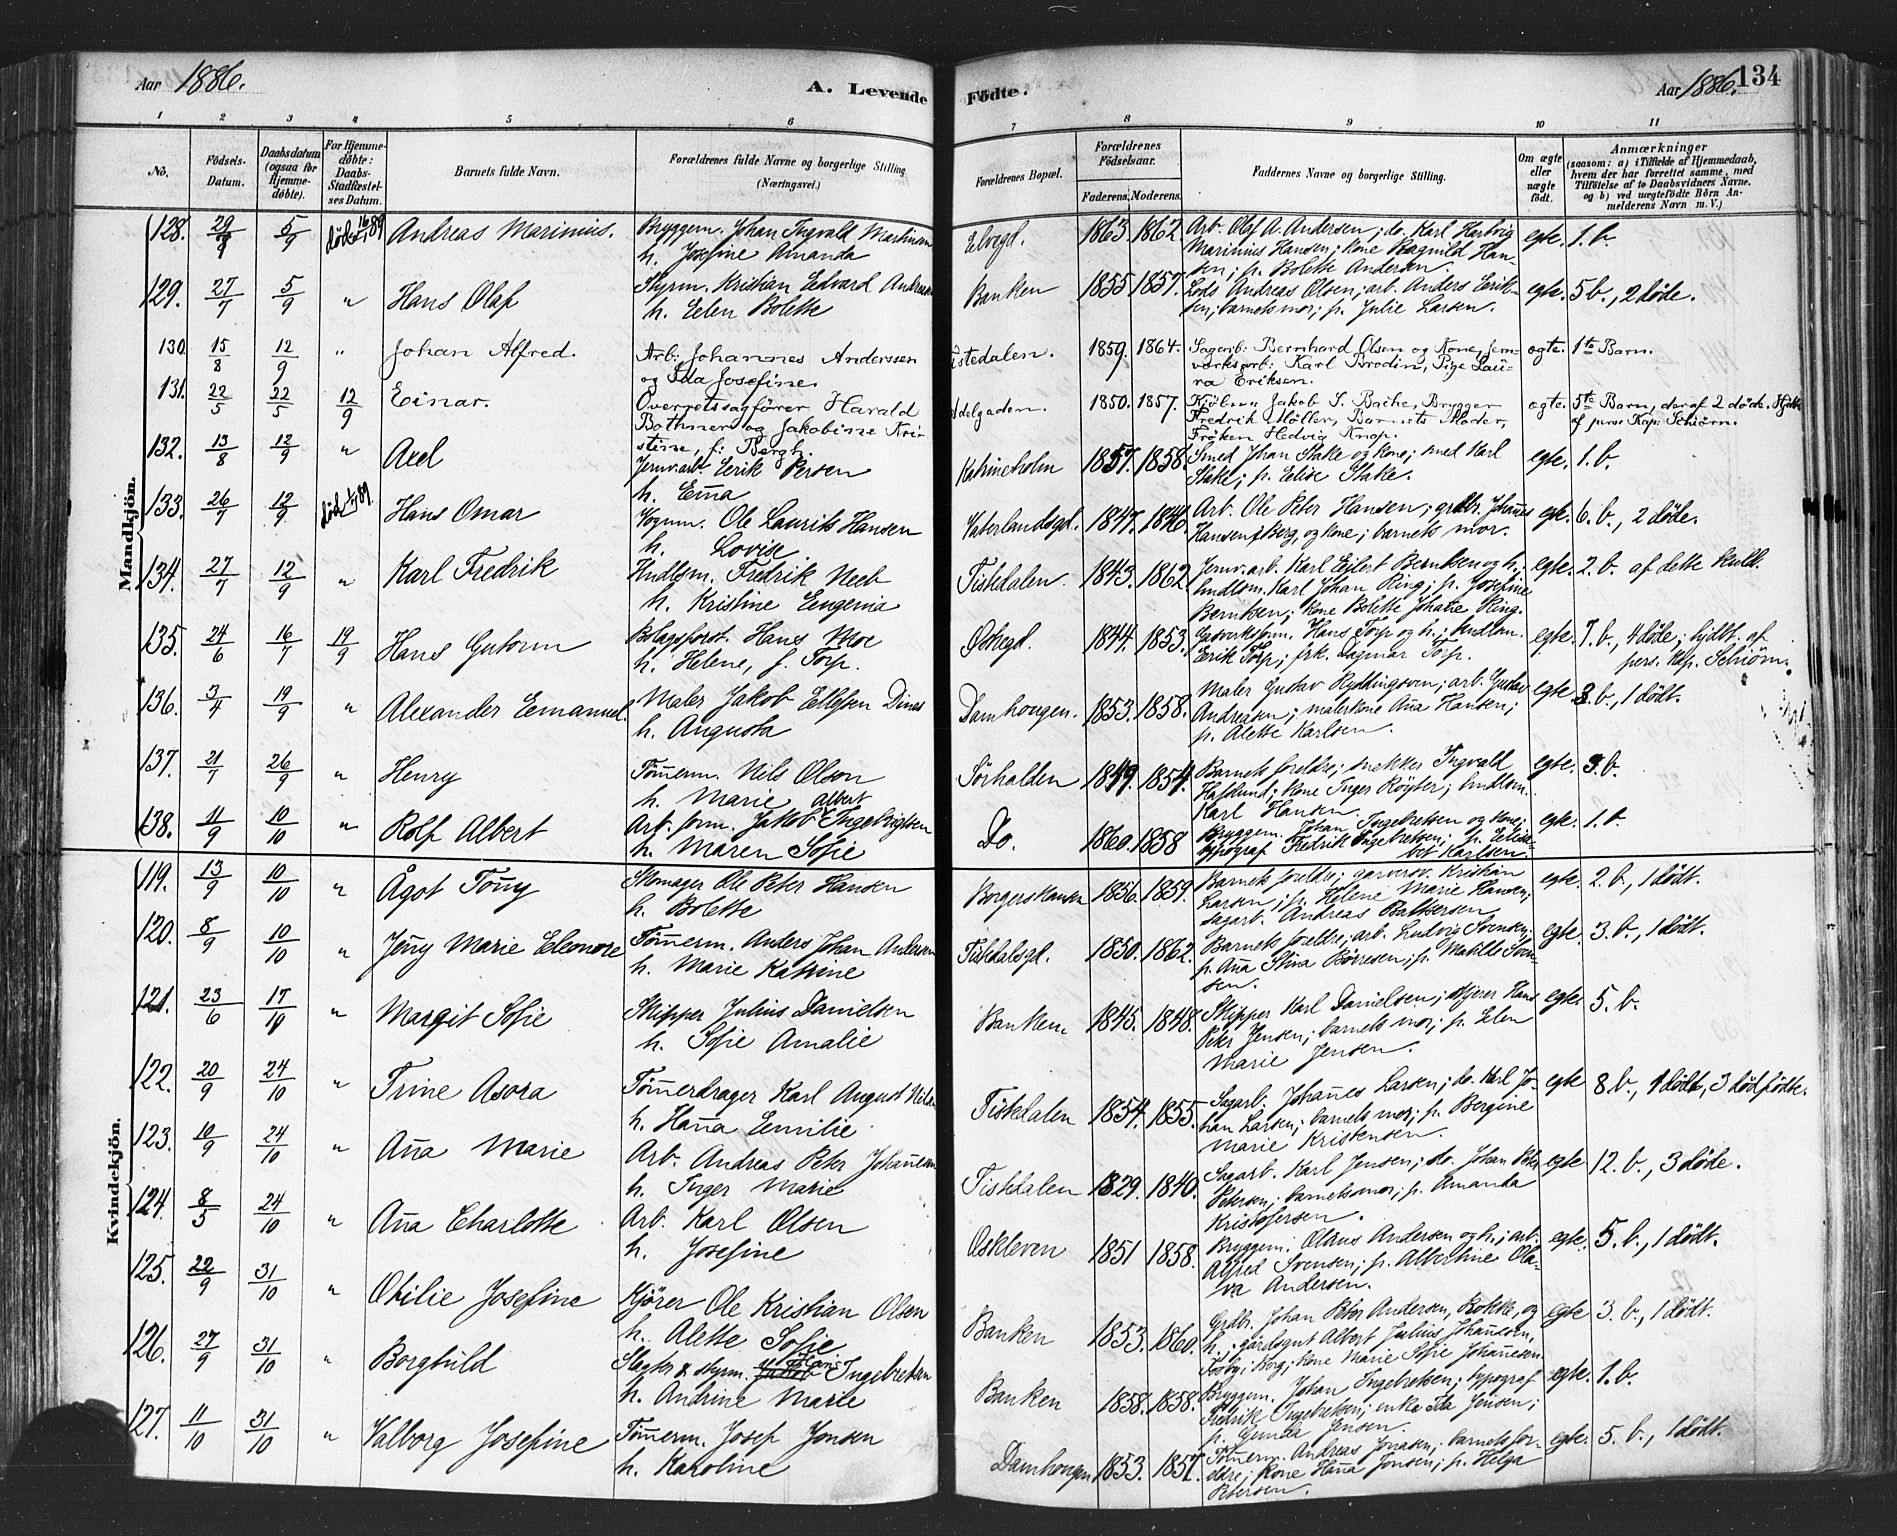 Aar 1886.
A. Levende
Födte.
Aar 1886.
134
1 2 3 4 5 6 7 8 9 10 11
No.
Födsels-Datum.
Daabsdatum (ogsaa for Hjemme-döbte).
For Hjemme-döbte: Daabs-Stadfæstel-ses Datum.
Barnets fulde Navn.
Forældrenes fulde Navne og borgerlige Stilling (Næringsvei.)
Forældrenes Bopæl.
Forældrenes Födselsaar.
Faderens. Moderens.
Faddernes Navne og borgerlige Stilling.
Om ægte eller uægte födt.
Anmærkninger
(saasom: a) i Tilfælde af Hjemmedaab, hvem der har forrettet samme, med Tilföielse af to Daabsvidners Navne, og b) ved uægtefödte Börn Anmelderens Navn m. V.)
Mandkjön.
128. 5/9 död 89 Andreas Marinius. Bryggem. Johan Ingvald Martinsen
h. Josefine Amanda
Elvegd. 1863 1862. Arb. Olaf A. Andersen; do. Karl Hartvig
Marinius Hansen; kone Ragnild Han-
sen; p. Bolette Andersen.
egte. 1. b.
129. 27/7 5/9 " Hans Olaf Styrm. Kristian Edvard Andreasen
h. Elen Bolette
Banken 1855 1857. Lods Andreas Olsen; arb. Anders Erik-
sen; barnets mor; p. Julie Larsen.
egte. 5 b., 2 döde.
130. 15/8 12/9 " Johan Alfred. Arb: Johannes Anderssen
og Ida Josefine.
1859. 1864. Sagarb: Bernhard Olsen og Kone, Jern-
værksarb: Karl Brodin, Pige Lau-
ra Eriksen.
ægte. 1ste Barn.
131. 22/5 22/5 12/9 Einar. Overretssagförer Harald
Bothner og Jakobine Kri-
stine, f: Bergh.
1850. 1857. Kjöbm: Jakob S. Bache, Brygger
Fredrik Möller, Barnets Moder,
Fröken Hedvig Knap.
ægte. 5te Barn, deraf 2 döde. Hjdbt
af pers: Kap: Schiörn.
132. 13/8 12/9 " Axel Jernv.arb. Erik Persen
h. Emma
Katrineholm 1857. 1858. Smed Johan Stake og kone; smed Karl
Stake; p. Elise Stake.
egte. 1. b.
133. 26/7 12/9 död 89 Hans Omar Vognm. Ole Laurits Hansen
h. Lovise.
Vaterlandsgd. 1847. 1846. Arb. Ole Peter Hansen; grdbr. Johannes
Hansen, Berg, og kone; barnets mor.
egte. 6. b., 2 döde.
134. 27/7 12/9 " Karl Fredrik Hndlsm. Fredrik Neeb
h. Kristine Eugenia
Tistedalen. 1843. 1862 Jernv.arb. Karl Eilert Berntsen og h.;
hndlsm. Karl Johan Ring; p. Josefine
Berntsen; kone Bolette Johanne Ring.
egte. 2. b. af dette kuld.
135. 24/6 16/7 19/9 Hans Gutorm Bolagsforst. Hans Moe
h. Helene, f. Torp.
1844. 1853. Hans Torp og h.; hndlsm.
Erik Torp; frk. Dagmar Torp.
egte. 7. b., 4 döde; hjdbt. af
pers. kap. Schiörn.
136. 3/4 19/9 " Alexander Emanuel. Maler Jakob Ellefsen Dines
h. Augusta
Damhougen. 1853. 1858. Maler Gustav Ryddingsven; arb. Gustav
Andreasen; malerkone Anna Hansen;
p. Alette Karlsen.
egte 3. b., 1 dödt.
137. 21/7 26/9 " Henry Tömmerm. Nils Olsen
h. Marie
Sörhalden 1849. 1854. Barnets foreldre; snekker Ingvald
Hafslund; kone Inger Röyter; hndlsm.
Karl Hansen.
egte. 3. b.
138. 11/9 10/10 " Rolf Albert Arb. form. Jakob Albert Ingebrigtsen
h. Maren Sofie
Do. 1860. 1858 Bryggem. Johan Ingebretsen og kone;
typograf Fredrik Ingebretsen; p. Elisa-
bet Karlsen.
egte. 1. b.
Kvindekjön.
119. 13/9 10/10 " Ågot Tonny Skomager Ole Peter Hansen
h. Bolette
Borgerskansen 1856. 1859. Barnets foreldre; garversv. Kristian
Larsen; p. Helene Marie Hansen;
sagarb. Andreas Baltsersen
egte. 2. b., 1 dödt.
120. 8/9 10/10 " Jenny Marie Eleonore Tömmerm. Anders Johan Andersen
h. Marie Katrine
Tistedalsgd. 1850. 1862. Barnets foreldre; arb. Ludvig Svensen;
p. Anna Stina Börresen; p. Matilde Sven-
sen.
egte. 3. b., 1 dödt.
121. 23/6 17/10 " Margit Sofie Skipper Julius Danielsen
h. Sofie Amalie
Banken. 1845. 1848. Skipper Karl Danielsen; Hans
Peter Jensen; barnets mor; p. Elen
Marie Jensen.
egte. 5. b.
122. 20/9 24/10 " Trine Asora Tömmerdrager Karl August Nilsen
h. Hanna Emilie
Tistedalen 1854. 1855. Sagarb. Johannes Larsen; do. Karl Jo-
han Larsen; barnets mor; p. Bergine
Marie Kristensen.
egte 8. b., 1 dödt, 3 dödfödte.
123. 10/9 24/10 " Anna Marie Arb. Andreas Peter Johannesen
h. Inger Marie
Tistedalen 1829. 1840. Sagarb. Karl Jensen; do. Johan Peter
Petersen; barnets mor; p. Amanda
Kristofersen.
egte 12. b., 3 döde.
124. 8/5 24/10 " Anna Charlotte Arb. Karl Olsen
h. Josefine
Oskleven 1851 1858. Bryggem. Olaus Andersen og h.; arb.
Alfred Svensen; p. Albertine Ola-
va Andersen.
egte. 5. b., 1 dödt.
125. 22/9 31/10 " Otilie Josefine Kjörer Ole Kristian Olsen
h. Alette Sofie.
Banken 1853. 1860. Grdbr. Johan Peter Andersen, Bokke, og
h.; gårdsgut Albert Julius Johannesen,
Berg; kone Marie Sofie Johannesen.
egte 3. b., 1 dödt.
126. 27/9 31/10 " Borghild Slagter & styrm. Ingebretsen
h. Andrine Marie
Banken 1858. 1858. Bryggem. Johan Ingebretsen; typograf
Fredrik Ingebretsen; enke Ida Jensen;
p. Gunda Jensen.
egte. 1. b.
127. 11/10 31/10 " Valborg Josefine Tömmerm. Josef Jonsen
h. Karoline
Damhougen 1853. 1857. Tömmerm. Andreas Jonasen; barnets for-
eldre; kone Hanna Jonsen; p. Helga
Petersen.
egte. 5. b., 1 dödt.